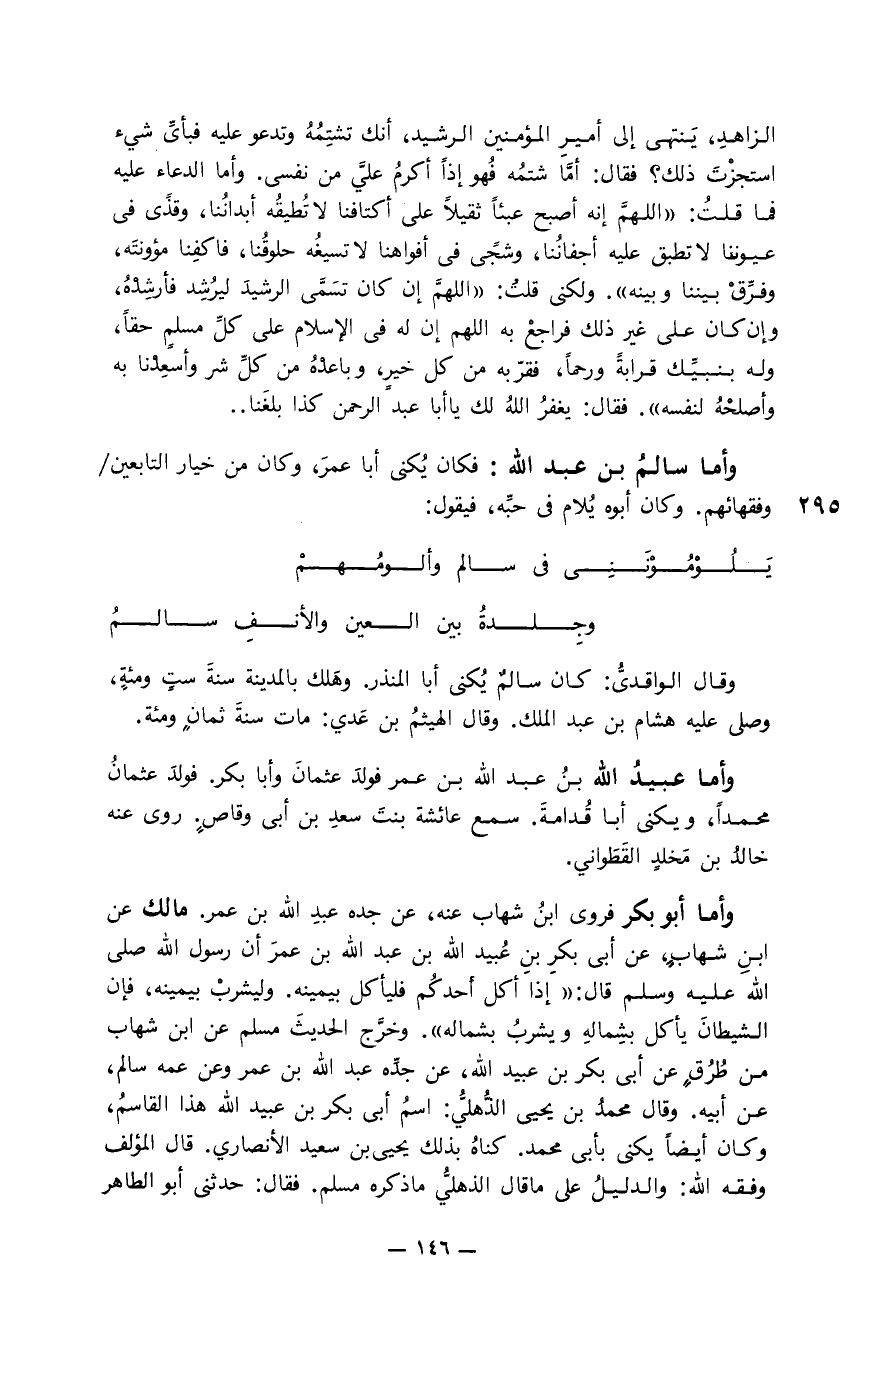 الزاهدِ، يَنتهى إلى أميرِ المؤمنين الرشيد، أنك تشتِمُهُ وتدعو عليه فبأىِّ شيء
استجزْتَ ذلك؟ فقال: أمَّا شتمُه فُهو إذاً أكرمُ عليَّ من نفسى. وأما الدعاء عليه
فما قلتُ: «اللهمَّ إنه أصبح عبئاً ثقيلاً على أكتافنا لا تُطيقُه أبدانُنا، وقذًى فى
عيوننا لا تطبق عليه أجفانُنا، وشجًى فى أفواهنا لا تسيغُه حلوقُنا، فاكفِنا مؤونتَه،
وفرِّقْ بيننا وبينه». ولكنى قلتُ: «اللهمَّ إن كان تسَمَّى الرشيدَ ليرُشِد فأرشِدْهُ،
وإن كان على غير ذلك فراجعْ به اللهم إن له فى الإسلام على كلِّ مسلمٍ حقاً،
وله بنبيِّك قرابةً ورحماً، فقرّبه من كل خيرٍ، وباعدْهُ من كلِّ شر وأسعِدْنا به
وأصلحْهُ لنفسه». فقال: يغفرُ اللهُ لك ياأبا عبد الرحمن كذا بلغَنا..
وأما سالمُ بن عبد الله : فكان يُكنى أبا عمرَ، وكان من خيار التابعين/
٢٩٥ وفقهائهم. وكان أبوه يُلام فى حبِّه، فيقول:
يَلُوْمُوْنَنِى فى سالم وألومُهمْ
وجِلدةُ بين العين والأنفِ سالمُ
وقال الواقدىُّ: كان سالمٌ يُكنى أبا المنذر. وهَلك بالمدينة سنةَ ستٍ ومئةٍ،
وصلى عليه هشام بن عبد الملك. وقال الهيثمُ بن عَدي: مات سنةَ ثمانٍ ومئة.
وأما عبيدُ الله بنُ عبد الله بن عمر فولدَ عثمانَ وأبا بكر. فولدَ عثمانُ
محمداً، ويكنى أبا قُدامةَ. سمع عائشة بنتَ سعدِ بن أبى وقاصٍ. روى عنه
خالدُ بن مَخلدٍ القَطَواني.
وأما أبو بكر فروى ابنُ شهاب عنه، عن جده عبدِ الله بن عمر. مالك عن
ابنِ شهابٍ، عن أبى بكرِ بنِ عُبيد الله بن عبد الله بن عمرَ أن رسول الله صلى
الله عليه وسلم قال:« إذا أكل أحدكُم فليأكل بيمينه. وليشربْ بيمينه، فإن
الشيطانَ يأكل بشِمالهِ ويشربُ بشماله». وخرَّج الحديثَ مسلم عن ابن شهاب
من طُرُقٍ عن أبى بكر بن عبيد الله، عن جدِّه عبد الله بن عمر وعن عمه سالم،
عن أبيه. وقال محمدُ بن يحيى الذُّهليُّ: اسمُ أبى بكر بن عبيد الله هذا القاسمُ،
وكان أيضاً يكنى بأبى محمد. كناهُ بذلك يحيى بن سعيد الأنصاري. قال المؤلف
وفقه الله: والدليلُ على ماقال الذهليُّ ماذكره مسلم. فقال: حدثنى أبو الطاهر
— ١٤٦ —